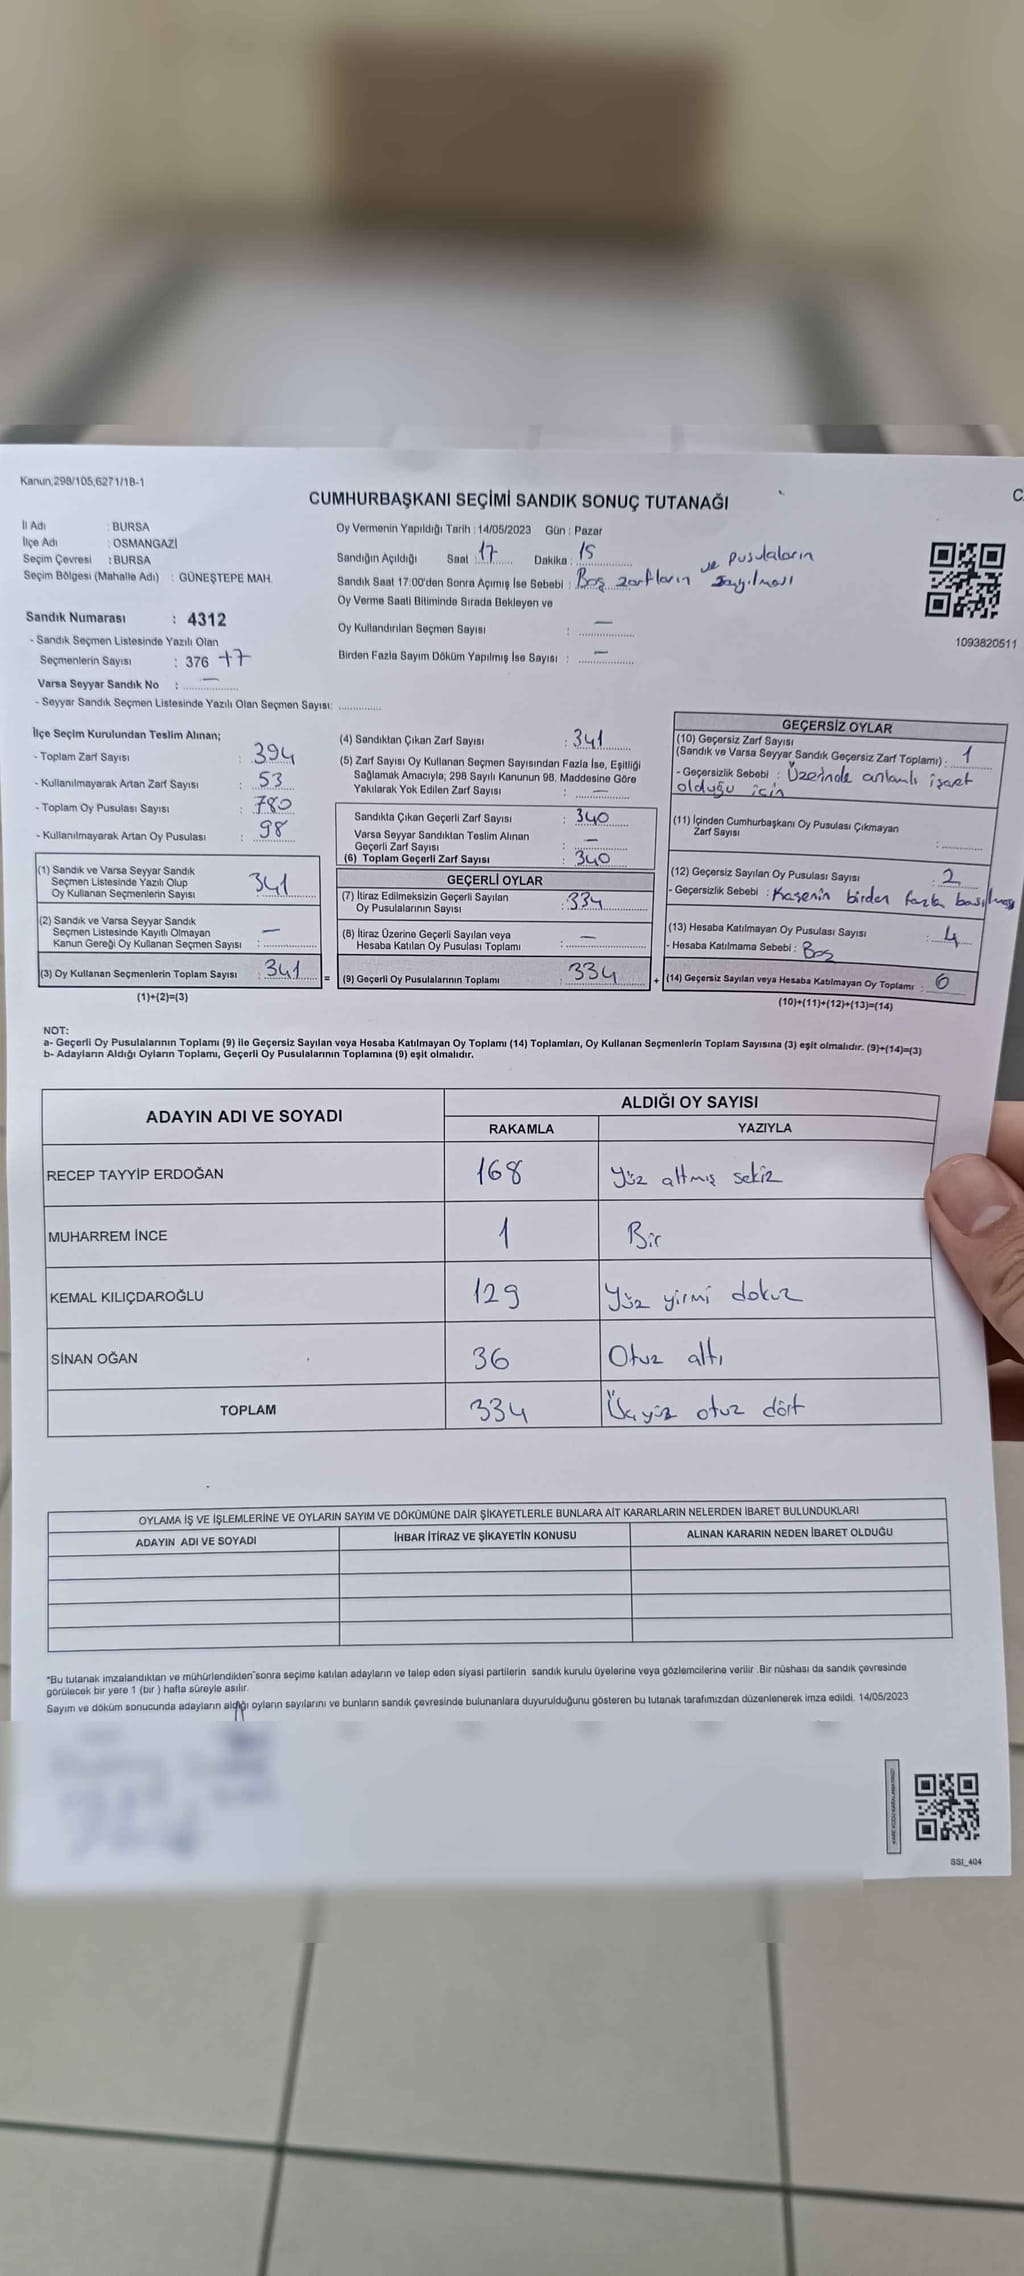 Kanun,298/105,6271/18-1
CUMHURBAŞKANI SEÇİMİ SANDIK SONUÇ TUTANAĞI
İl Adı : BURSA
İlçe Adı : OSMANGAZİ
Seçim Çevresi : BURSA
Seçim Bölgesi (Mahalle Adı) : GÜNEŞTEPE MAH.
Oy Vermenin Yapıldığı Tarih : 14/05/2023 Gün : Pazar
Sandığın Açıldığı Saat 17 Dakika : 15
Sandık Saat 17:00'den Sonra Açımış İse Sebebi : Boş zarfların ve pusulaların sayılması
Oy Verme Saati Bitiminde Sırada Bekleyen ve
Oy Kullandırılan Seçmen Sayısı : —
Birden Fazla Sayım Döküm Yapılmış İse Sayısı : —
1093820511
Sandık Numarası : 4312
- Sandık Seçmen Listesinde Yazılı Olan
Seçmenlerin Sayısı : 376 +7
Varsa Seyyar Sandık No : —
- Seyyar Sandık Seçmen Listesinde Yazılı Olan Seçmen Sayısı:
İlçe Seçim Kurulundan Teslim Alınan;
- Toplam Zarf Sayısı : 394
- Kullanılmayarak Artan Zarf Sayısı : 53
- Toplam Oy Pusulası Sayısı : 780
- Kullanılmayarak Artan Oy Pusulası : 98
(1) Sandık ve Varsa Seyyar Sandık
Seçmen Listesinde Yazılı Olup
Oy Kullanan Seçmenlerin Sayısı : 341
(2) Sandık ve Varsa Seyyar Sandık
Seçmen Listesinde Kayıtlı Olmayan
Kanun Gereği Oy Kullanan Seçmen Sayısı : —
(3) Oy Kullanan Seçmenlerin Toplam Sayısı : 341
(1)+(2)=(3)
=
(4) Sandıktan Çıkan Zarf Sayısı : 341
(5) Zarf Sayısı Oy Kullanan Seçmen Sayısından Fazla İse, Eşitliği
Sağlamak Amacıyla; 298 Sayılı Kanunun 98. Maddesine Göre
Yakılarak Yok Edilen Zarf Sayısı : —
Sandıkta Çıkan Geçerli Zarf Sayısı : 340
Varsa Seyyar Sandıktan Teslim Alınan
Geçerli Zarf Sayısı : —
(6) Toplam Geçerli Zarf Sayısı : 340
GEÇERLİ OYLAR
(7) İtiraz Edilmeksizin Geçerli Sayılan
Oy Pusulalarının Sayısı : 334
(8) İtiraz Üzerine Geçerli Sayılan veya
Hesaba Katılan Oy Pusulası Toplamı : —
(9) Geçerli Oy Pusulalarının Toplamı : 334
+
GEÇERSİZ OYLAR
(10) Geçersiz Zarf Sayısı
(Sandık ve Varsa Seyyar Sandık Geçersiz Zarf Toplamı) : 1
- Geçersizlik Sebebi : Üzerinde anlamlı işaret
olduğu için
(11) İçinden Cumhurbaşkanı Oy Pusulası Çıkmayan
Zarf Sayısı :
(12) Geçersiz Sayılan Oy Pusulası Sayısı : 2
- Geçersizlik Sebebi : Kaşenin birden fazla basılması
(13) Hesaba Katılmayan Oy Pusulası Sayısı : 4
- Hesaba Katılmama Sebebi : Boş
(14) Geçersiz Sayılan veya Hesaba Katılmayan Oy Toplamı : 6
(10)+(11)+(12)+(13)=(14)
NOT:
a- Geçerli Oy Pusulalarının Toplamı (9) ile Geçersiz Sayılan veya Hesaba Katılmayan Oy Toplamı (14) Toplamları, Oy Kullanan Seçmenlerin Toplam Sayısına (3) eşit olmalıdır. (9)+(14)=(3)
b- Adayların Aldığı Oyların Toplamı, Geçerli Oy Pusulalarının Toplamına (9) eşit olmalıdır.
ADAYIN ADI VE SOYADI
ALDIĞI OY SAYISI
RAKAMLA YAZIYLA
RECEP TAYYİP ERDOĞAN 168 Yüz altmış sekiz
MUHARREM İNCE 1 Bir
KEMAL KILIÇDAROĞLU 129 Yüz yirmi dokuz
SİNAN OĞAN 36 Otuz altı
TOPLAM 334 Üçyüz otuz dört
OYLAMA İŞ VE İŞLEMLERİNE VE OYLARIN SAYIM VE DÖKÜMÜNE DAİR ŞİKAYETLERLE BUNLARA AİT KARARLARIN NELERDEN İBARET BULUNDUKLARI
ADAYIN ADI VE SOYADI İHBAR İTİRAZ VE ŞİKAYETİN KONUSU ALINAN KARARIN NEDEN İBARET OLDUĞU
*Bu tutanak imzalandıktan ve mühürlendikten sonra seçime katılan adayların ve talep eden siyasi partilerin sandık kurulu üyelerine veya gözlemcilerine verilir .Bir nüshası da sandık çevresinde
görülecek bir yere 1 (bir ) hafta süreyle asılır.
Sayım ve döküm sonucunda adayların aldığı oyların sayılarını ve bunların sandık çevresinde bulunanlara duyurulduğunu gösteren bu tutanak tarafımızdan düzenlenerek imza edildi. 14/05/2023
SSI_404